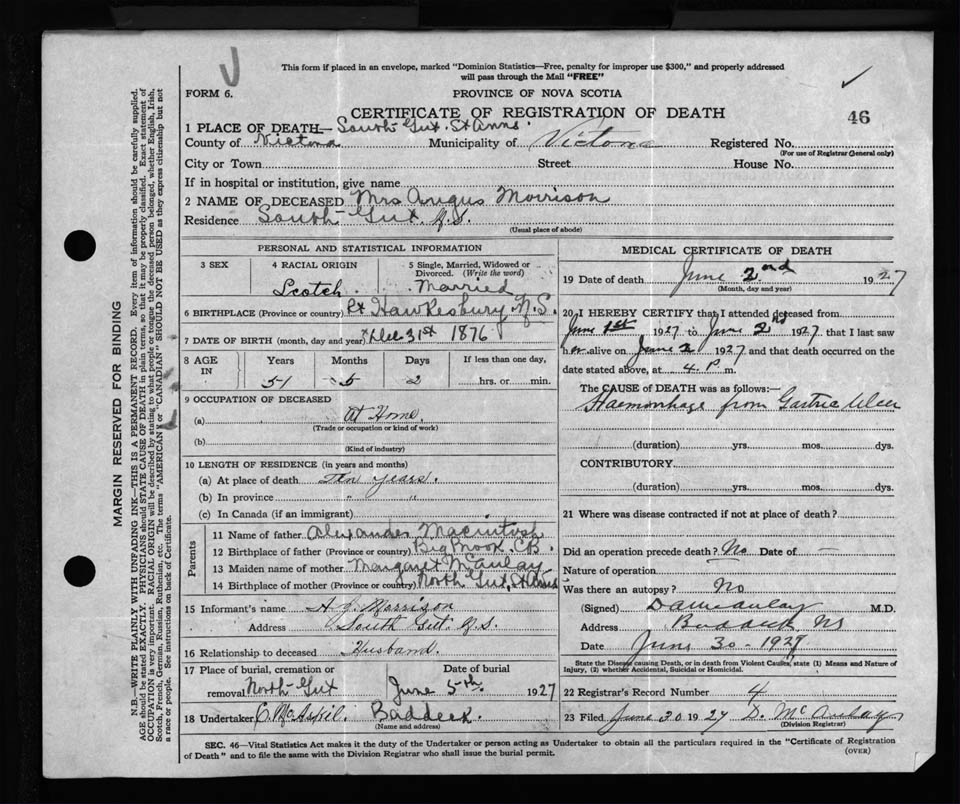 J
This form if placed in an envelope, marked "Dominion Statistics—Free, penalty for improper use $300," and properly addressed
will pass through the Mail "FREE"
FORM 6.
PROVINCE OF NOVA SCOTIA
CERTIFICATE OF REGISTRATION OF DEATH
46
1 PLACE OF DEATH— South Gut St Anns.
County of Victoria Municipality of Victoria Registered No.
(For use of Registrar General only)
City or Town Street House No.
If in hospital or institution, give name
2 NAME OF DECEASED Mrs Angus Morrison
Residence South Gut N.S.
(Usual place of abode)
PERSONAL AND STATISTICAL INFORMATION
3 SEX 4 RACIAL ORIGIN 5 Single, Married, Widowed or Divorced. (Write the word)
Scotch. Married
6 BIRTHPLACE (Province or country) Pt Hawkesbury N.S.
7 DATE OF BIRTH (month, day and year) Dec 31st 1876
8 AGE IN Years Months Days If less than one day,
51 5 2 hrs. or min.
9 OCCUPATION OF DECEASED
(a) At Home.
(Trade or occupation or kind of work)
(b)
(Kind of industry)
10 LENGTH OF RESIDENCE (in years and months)
(a) At place of death Ten years.
(b) In province " "
(c) In Canada (if an immigrant)
Parents
11 Name of father Alexander MacIntosh
12 Birthplace of father (Province or country) Big Brook. C.B.
13 Maiden name of mother Margaret McAulay
14 Birthplace of mother (Province or country) North Gut, St Anns
15 Informant's name A J Morrison
Address South Gut N.S.
16 Relationship to deceased Husband.
17 Place of burial, cremation or removal North Gut Date of burial June 5th. 1927
18 Undertaker Baddeck.
(Name and address)
MEDICAL CERTIFICATE OF DEATH
19 Date of death June 2nd 1927
(Month, day and year)
20 I HEREBY CERTIFY that I attended deceased from
June 1st 1927 to June 2nd 1927 that I last saw
her alive on June 2 1927 and that death occurred on the
date stated above, at 4. P m.
The CAUSE OF DEATH was as follows:—
Haemorrhage from Gastric Ulcer
(duration) yrs. mos. dys.
CONTRIBUTORY.
(duration) yrs. mos. dys.
21 Where was disease contracted if not at place of death?
Did an operation precede death? No Date of —
Nature of operation
Was there an autopsy? No
(Signed) D McAulay M.D.
Address Baddeck NS
Date June 30 - 1927
State the Disease causing Death, or in death from Violent Causes, state (1) Means and Nature of
Injury, (2) whether Accidental, Suicidal or Homicidal.
22 Registrar's Record Number 4
23 Filed June 30 1927 D. McAulay
(Division Registrar)
SEC. 46—Vital Statistics Act makes it the duty of the Undertaker or person acting as Undertaker to obtain all the particulars required in the "Certificate of Registration
of Death" and to file the same with the Division Registrar who shall issue the burial permit.
(OVER)
MARGIN RESERVED FOR BINDING
N.B.—WRITE PLAINLY WITH UNFADING INK—THIS IS A PERMANENT RECORD. Every item of information should be carefully supplied.
AGE should be stated EXACTLY. PHYSICIANS should STATE CAUSE OF DEATH in plain terms, so that it may be properly classified. Exact statement of
OCCUPATION is very important. RACIAL ORIGIN will be described by stating to what people or tongue the deceased person belonged, whether English, Irish,
Scotch, French, German, Russian, Ruthenian, etc. The terms "AMERICAN" or "CANADIAN" SHOULD NOT BE USED as they express citizenship but not
a race or people. See instructions on back of Certificate.